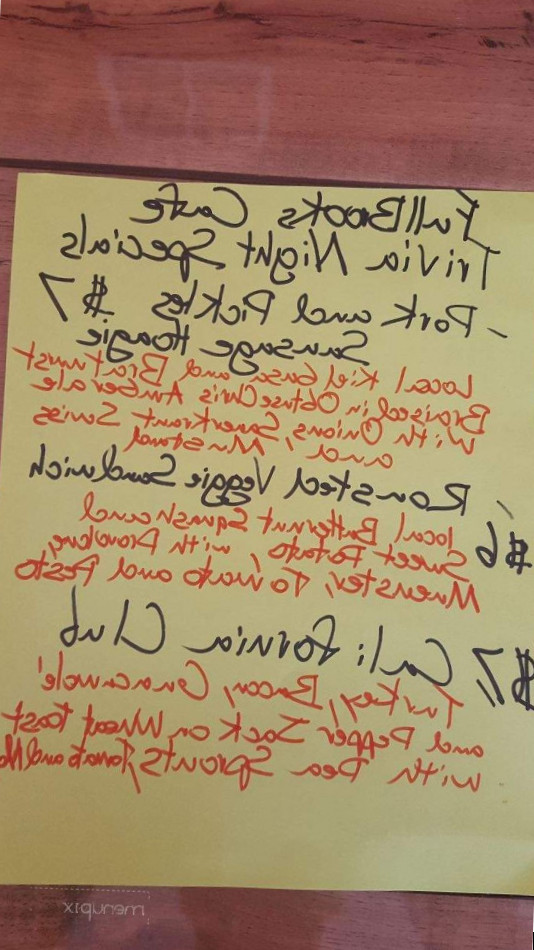 FullBrooks Cafe
Trivia Night Specials
- Pork and Pickles $7
Sausage Hoagie
Local Kielbasa and Bratwurst
Braised in Obtuse Chris Amber ale
with Onions, Sauerkraut, Swiss
and Mustard
- Roasted Veggie Sandwich
$6 local Butternut Squash and
Sweet Potato, with Provolone,
Muenster, Tomato and Pesto
$7, Cali fornia Club
Turkey, Bacon, Guacamole'
and Pepper Jack on Wheat Toast
with Pea Sprouts, Tomato and
menupix